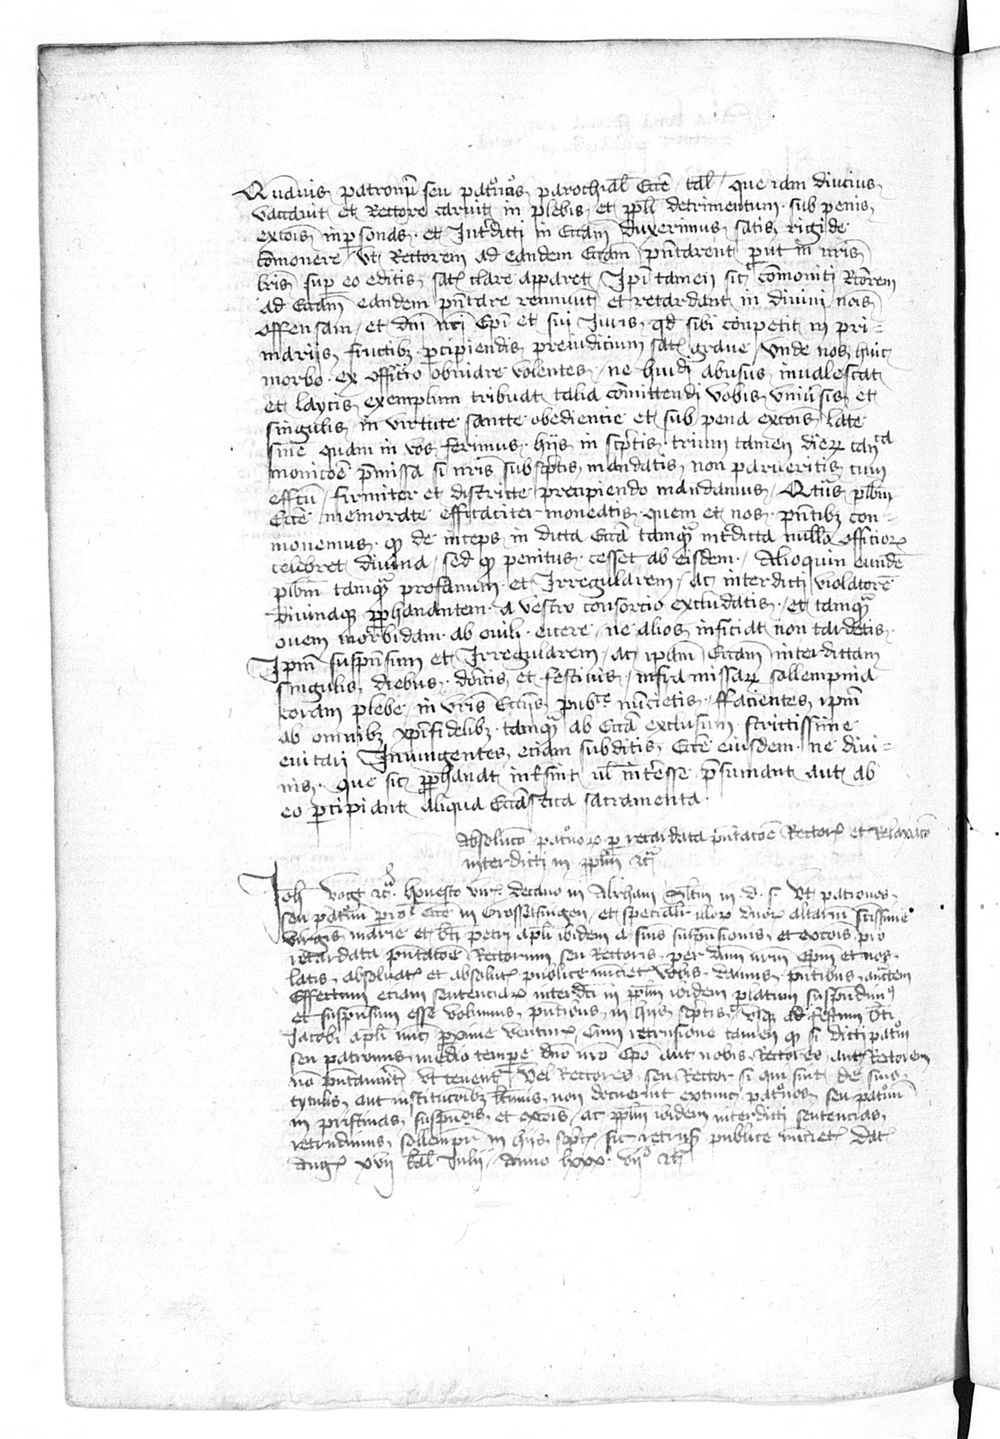 Quamvis patronum seu patronos parochial Eccē tal que iam diucius
vacavit et Rectore caruit in plebis et ppli detrimentum sub penis
excōis in psonas et Interdicti in Eccām duxerimus satis rigide
cōmonere ut Rectorem ad eandem Eccām pñtarent put in nr̄is
lr̄is sup eo editis satis clare apparet Ipi tamen sic cōmoniti Rcōrem
ad Eccām eandem pñtare rennuut et retardant in divini nōis
offensam et dn̄i nr̄i Ep̄i et sui Iuris qd sibi conpetit in pri=
mariis fructibz percipiendis preiudicium satis grave Unde nos huic
morbo ex officio obviare volentes ne huiōi abusus invalescat
et laycis exemplum tribuat talia cōmittendi vobis univsis et
singulis in virtute sancte obedientie et sub pena excōis late
snīe quam in vos ferimus hiis in scptis trium tamen dierum canca
monicōe p̄missa si nr̄is subscptis mandatis non parueritis cum
effcū firmiter et districte precipiendo mandamus Qtus plb̄m
Eccē memorate efficaciter moneatis quem et nos pñtibz con=
monemus qd de inceps in dicta Eccā tamqz intdicta nulla officiorz
celebret divina sed qd penitus cesset ab eisdem Alioquin eundē
plb̄m tamqz profanum et Irregularem ac interdicti violatorē
divinaqz pphanantem a vestro consorcio excludatis et tamqz
ovem morbidam ab ovili eicere ne alios inficiat non tardetis
Ipm̄ suspensum et Irregularem ac ipam Eccām interdictam
singulis diebus dn̄icis et festivis infra missarz sollempnia
coram plebe in vr̄is Eccīis pub^ce nūcietis ffacientes ipm̄
ab omnibz xpifidelibz tamqz ab Eccā exclusum strictissime
evitari Iniungentes eciam subditis Eccē eiusdem ne divi=
nis que sic pphanat intsint ul intesse p̄sumant aut ab
eo pcipiant aliqua Eccāstica sacramenta
Absolucō patronorz p retardata pñtacōe Rectoris et Relaxacō
interdicti in pplm̄ ꝛc
Joh Vogt ꝛc honesto viro decano in Abrham Sltm in d f Ut patronos
seu patronum proch Eccē in Grosselfingen et specialit illorz duorz altarium sc̄issime
virginis marie et bt̄i petri apl̄i ibidem a snīis suspensionis et excōis pro
retardata pñtacōe Rectorum seu Rectoris per dn̄m nr̄m Ep̄m et nos
latis absolvatis et absolutos publice nūcietis vobis damus pñtibus auctem
Effectum eciam sentenciarz interdcti in pplm̄ ibidem platum suspendimus
et suspensum esse volumus pñtibus in hiis scptis usqz ad festum bt̄i
Jacobi apl̄i nūc proxime venturum Cum retrusione tamen qd si dicti patroni
seu patronus medio tempore dn̄o nr̄o Ep̄o aut nobis Rectores aut Rectorem
nō pñtaverint ut tenentur Vel Rectores seu Rector si qui sint de suis
tytulis aut institucōibz ltimis non docuerint extunc patronos seu patronum
in pristinas suspensionis et excōis ac pplm̄ ibidem interdicti sentencias
retrudimus sollempniter in hiis scptis sic retrusos publice nūcietis Dat
Auguste xvij kal Julij Anno lxxx vij° ꝛc